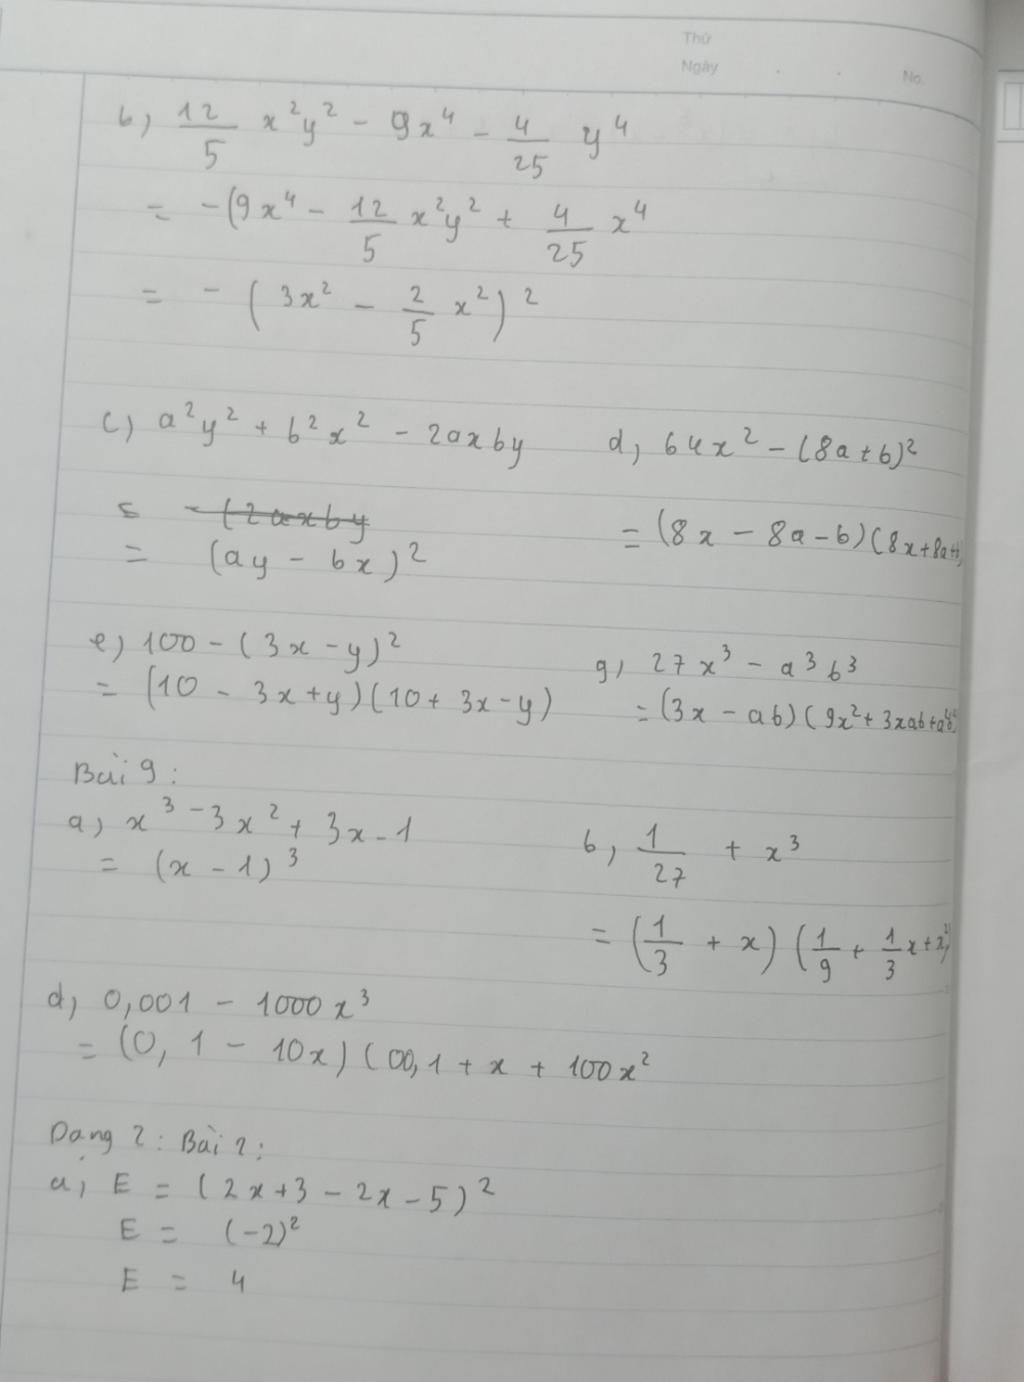 Thứ
Ngày
No.
b, 12/5 x²y² - 9x⁴ - 4/25 y⁴
= -(9x⁴ - 12/5 x²y² + 4/25 x⁴
= - (3x² - 2/5 x²)²
c) a²y² + b²x² - 2axby
= - (2axby
= (ay - bx)²
d, 64x² - (8a+b)²
= (8x - 8a - b)(8x+8a+b)
e) 100 - (3x - y)²
= (10 - 3x+y)(10+ 3x-y)
g, 27x³ - a³b³
= (3x - ab)(9x²+ 3xab+a²b²)
Bài 9:
a, x³ - 3x² + 3x - 1
= (x - 1)³
b, 1/27 + x³
= (1/3 + x)(1/9 + 1/3 x+x²)
d, 0,001 - 1000x³
= (0,1 - 10x)(00,1 + x + 100x²
Dạng 2: Bài 2:
a, E = (2x+3 - 2x - 5)²
E = (-2)²
E = 4